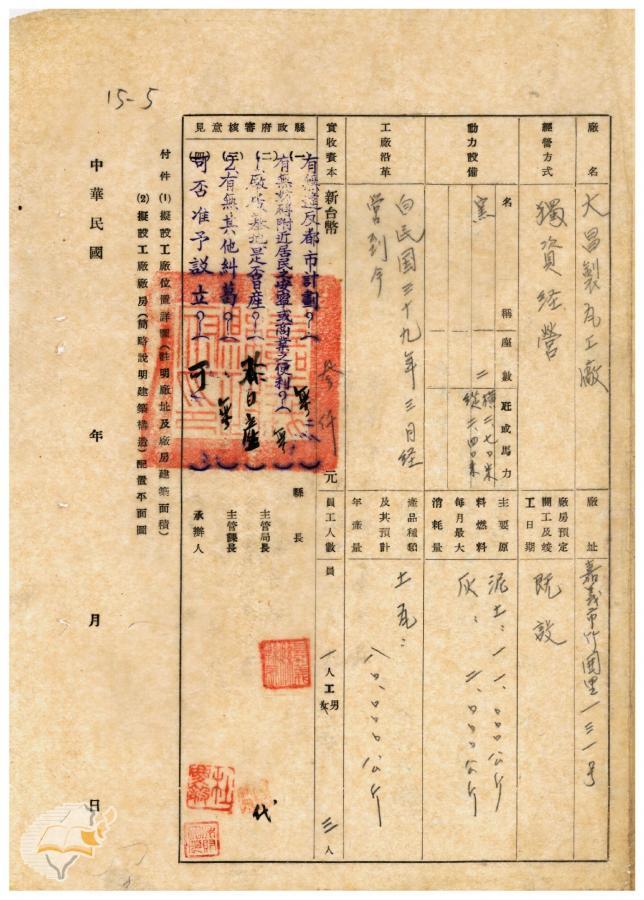 15-5
廠名
大昌製瓦工廠
廠址
嘉義市竹圍里一三一号
經營方式
獨資経營
廠房預定開工及竣工日期
既設
動力設備
名稱
窯
座數
二
瓩或馬力
橫二、七〇米
縱六、四〇米
主要原料燃料每月最大消耗量
泥土：一一、〇〇〇公斤
灰：二、〇〇〇公斤
工廠沿革
自民国三十九年三月経
營到今
產品種類及其預計年產量
土瓦：八〇、〇〇〇公斤
實收資本
新台幣
參仟
元
員工人數
員
一人
工
男
女
三人
縣政府審核意見
(一)有無違反都市計劃？(無)
(二)有無妨碍附近居民之安寧或商業之便利？(無)
(三)1.廠房基地是否日產？(非日產)
2.有無其他糾葛？(無)
(四)可否准予設立？(可)
縣長
主管局長
主管課長
代
承辦人
付件(1)擬設工廠位置詳圖(註明廠址及廠房建築面積)
(2)擬設工廠廠房(簡略說明建築構造)配置平面圖
中華民國 年 月 日